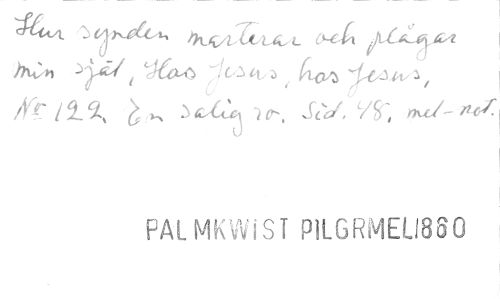 Hur synden marterar och plågar
min själ, Hos Jesus, hos Jesus,
No 122. En salig ro. Sid. 48. mel-not.
PALMKWIST PILGRMEL1860